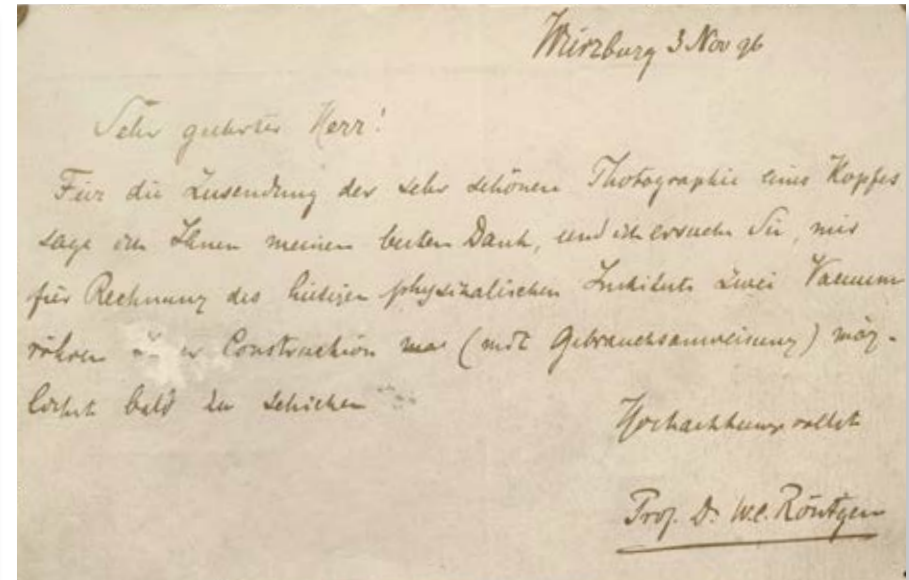 Würzburg 3 Nov 96
Sehr geehrter Herr!
Für die Zusendung der sehr schönen Photographie eines Kopfes
sage ich Ihnen meinen besten Dank, und ich ersuche Sie, mir
für Rechnung des hiesigen physikalischen Instituts zwei Vacuum
röhren Construction (mit Gebrauchsanweisung) mög-
lichst bald zu schicken
Hochachtungsvollst
Prof. Dr. W.C. Röntgen